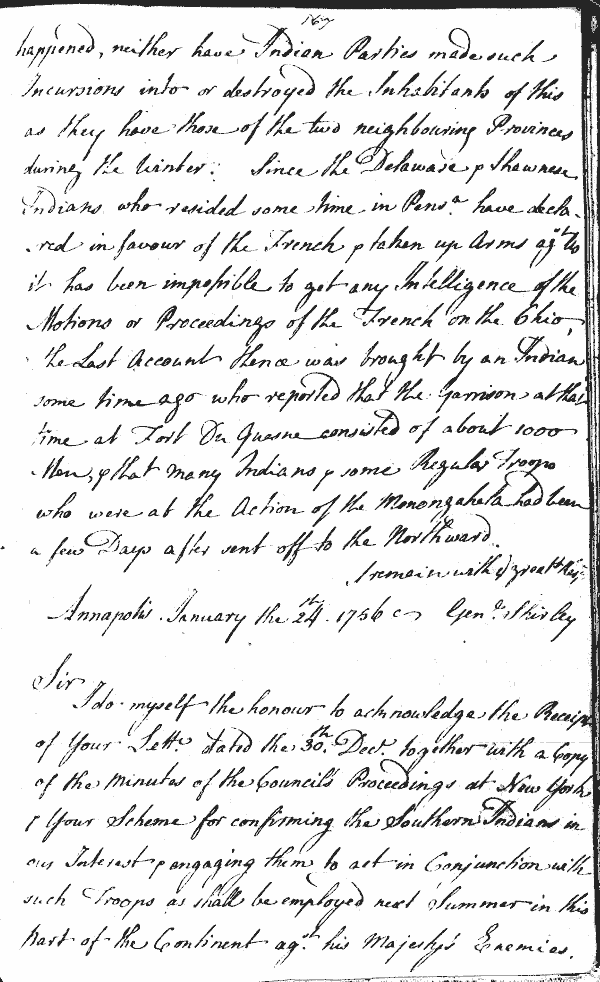 167
happened, neither have Indian Parties made such
Incursions into or destroyed the Inhabitants of this
as they have those of the two neighbouring Provinces
during the Winter. Since the Delaware & Shawnese
Indians who resided some time in Pens.a have decla-
-red in favour of the French & taken up Arms ag.t Us
it has been impossible to get any Intelligence of the
Motions or Proceedings of the French on the Ohio,
the Last Account thence was brought by an Indian
some time ago who reported that the Garrison at that
time at Fort Du Quesne consisted of about 1000
Men, & that many Indians & some Regular Troops
who were at the Action of the Monongahela had been
a few Days after sent off to the Northward.
I remain with y.e greatt Res
Annapolis. January the 24.th 1756 Gen.l Shirley
Sir
I do myself the honour to acknowledge the Receipt
of Your Lett.r dated the 30.th Dec.r together with a Copy
of the Minutes of the Council's Proceedings at New York
& Your Scheme for confirming the Southern Indians in
our Interest & engaging them to act in Conjunction with
such Troops as shall be employed next Summer in this
part of the Continent ag.st his Majesty's Enemies.